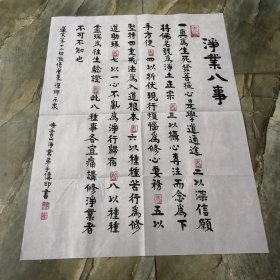 淨業八事
真為生死發菩提心是學道通途 二以深信願
持佛名號為淨土正宗 三以攝心專注而念為下
手方便 四以折伏現行煩惱為修心要務 五以
堅持四重戒法為入道根本 六以種種苦行為修
道助緣 七以一心不亂為淨行歸宿 八以種種
靈瑞為往生驗證 此八種事各宜痛講修淨業者
不可不知也
蓮宗第十二祖徹悟
傳印書